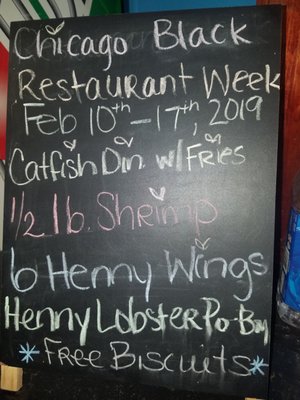 Chicago Black
Restaurant Week
Feb 10th - 17th, 2019
Catfish Din w/ Fries
1/2 lb. Shrimp
6 Henny Wings
Henny Lobster Po-Boy
*Free Biscuits*